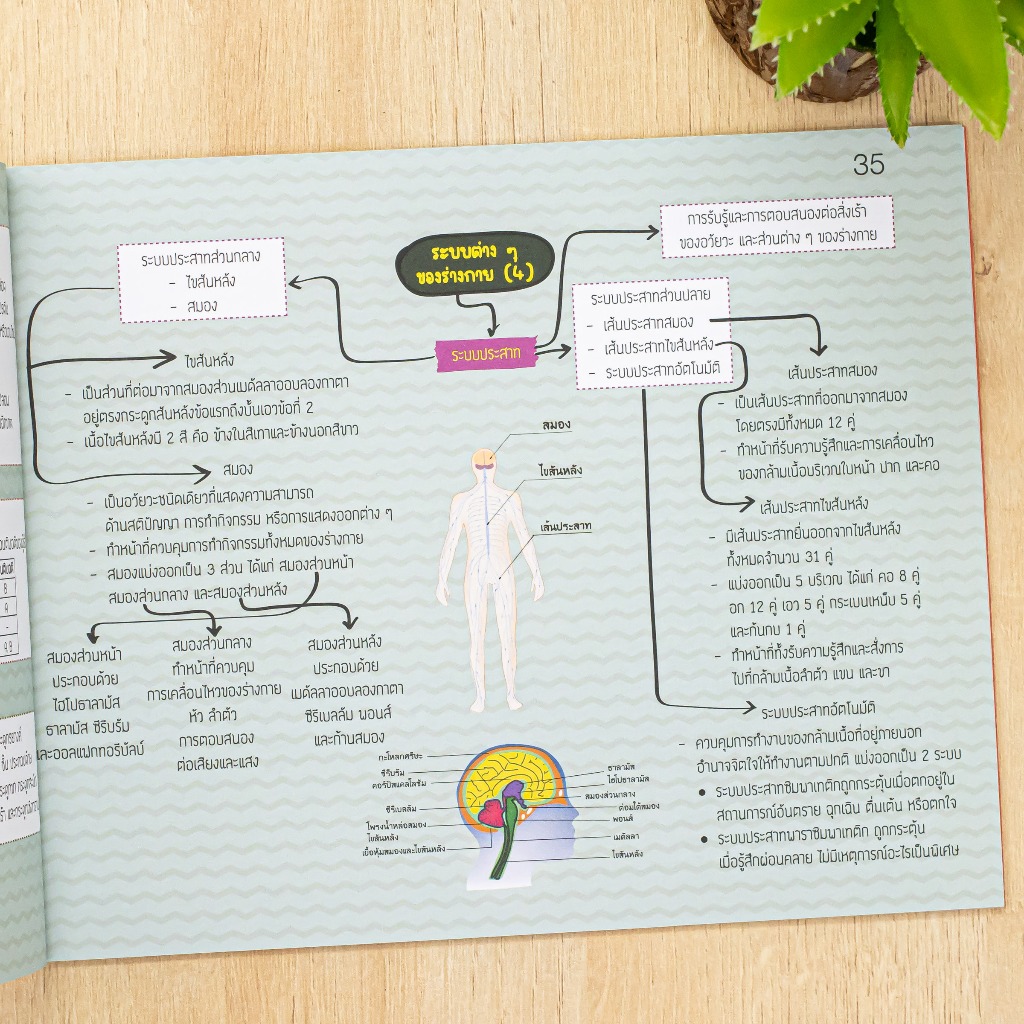 35
ระบบต่าง ๆ
ของร่างกาย (4)
ระบบประสาท
การรับรู้และการตอบสนองต่อสิ่งเร้า
ของอวัยวะ และส่วนต่าง ๆ ของร่างกาย
ระบบประสาทส่วนกลาง
- ไขสันหลัง
- สมอง
ไขสันหลัง
- เป็นส่วนที่ต่อมาจากสมองส่วนเมดัลลาออบลองกาตา
อยู่ตรงกระดูกสันหลังข้อแรกถึงบั้นเอวข้อที่ 2
- เนื้อไขสันหลังมี 2 สี คือ ข้างในสีเทาและข้างนอกสีขาว
สมอง
- เป็นอวัยวะชนิดเดียวที่แสดงความสามารถ
ด้านสติปัญญา การทำกิจกรรม หรือการแสดงออกต่าง ๆ
- ทำหน้าที่ควบคุมการทำกิจกรรมทั้งหมดของร่างกาย
- สมองแบ่งออกเป็น 3 ส่วน ได้แก่ สมองส่วนหน้า
สมองส่วนกลาง และสมองส่วนหลัง
สมองส่วนหน้า
ประกอบด้วย
ไฮโปธาลามัส
ธาลามัส ซีรีบรัม
และออลแฟกทอรีบัลบ์
สมองส่วนกลาง
ทำหน้าที่ควบคุม
การเคลื่อนไหวของร่างกาย
หัว ลำตัว
การตอบสนอง
ต่อเสียงและแสง
สมองส่วนหลัง
ประกอบด้วย
เมดัลลาออบลองกาตา
ซีรีเบลลัม พอนส์
และก้านสมอง
ระบบประสาทส่วนปลาย
- เส้นประสาทสมอง
- เส้นประสาทไขสันหลัง
- ระบบประสาทอัตโนมัติ
เส้นประสาทสมอง
- เป็นเส้นประสาทที่ออกมาจากสมอง
โดยตรงมีทั้งหมด 12 คู่
- ทำหน้าที่รับความรู้สึกและการเคลื่อนไหว
ของกล้ามเนื้อบริเวณใบหน้า ปาก และคอ
เส้นประสาทไขสันหลัง
- มีเส้นประสาทยื่นออกจากไขสันหลัง
ทั้งหมดจำนวน 31 คู่
- แบ่งออกเป็น 5 บริเวณ ได้แก่ คอ 8 คู่
อก 12 คู่ เอว 5 คู่ กระเบนเหน็บ 5 คู่
และก้นกบ 1 คู่
- ทำหน้าที่ทั้งรับความรู้สึกและสั่งการ
ไปที่กล้ามเนื้อลำตัว แขน และขา
ระบบประสาทอัตโนมัติ
- ควบคุมการทำงานของกล้ามเนื้อที่อยู่ภายนอก
อำนาจจิตใจให้ทำงานตามปกติ แบ่งออกเป็น 2 ระบบ
• ระบบประสาทซิมพาเทติกถูกกระตุ้นเมื่อตกอยู่ใน
สถานการณ์อันตราย ฉุกเฉิน ตื่นเต้น หรือตกใจ
• ระบบประสาทพาราซิมพาเทติก ถูกกระตุ้น
เมื่อรู้สึกผ่อนคลาย ไม่มีเหตุการณ์อะไรเป็นพิเศษ
สมอง
ไขสันหลัง
เส้นประสาท
กะโหลกศรีษะ
ซีรีบรัม
คอร์ปัสแคลโลซัม
ซีรีเบลลัม
โพรงน้ำหล่อสมอง
ไขสันหลัง
เยื่อหุ้มสมองและไขสันหลัง
ธาลามัส
ไฮโปธาลามัส
สมองส่วนกลาง
ต่อมใต้สมอง
พอนส์
เมดัลลา
ไขสันหลัง